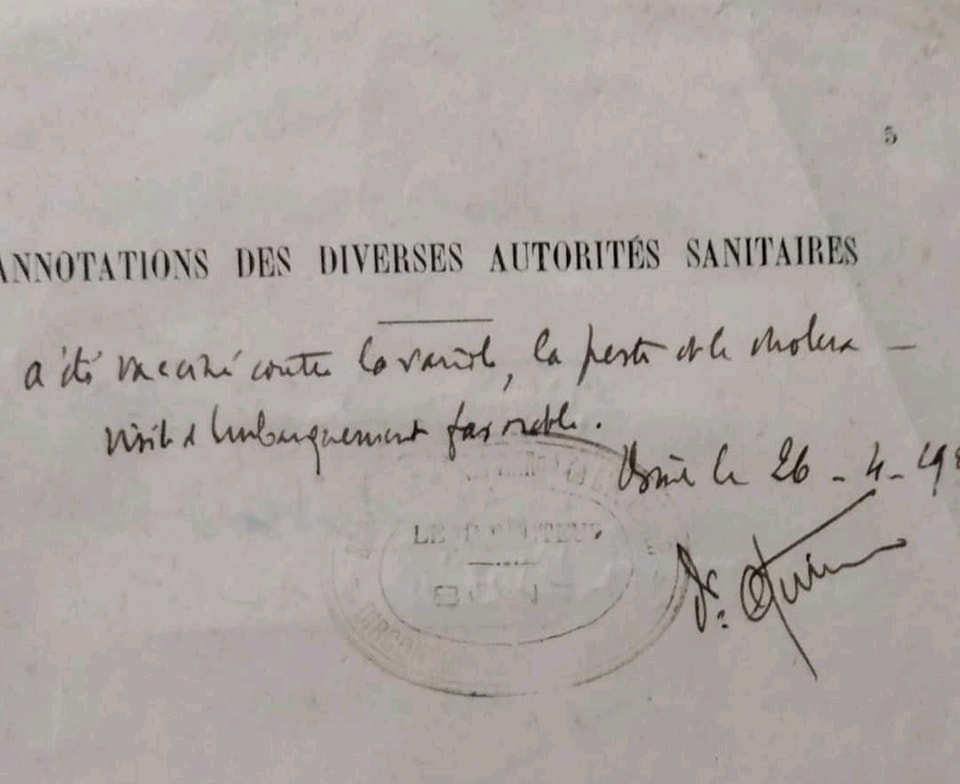 5
ANNOTATIONS DES DIVERSES AUTORITÉS SANITAIRES
a été vacciné contre la variole, la peste et le cholera –
visite d'embarquement favorable.
le 26 - 4 - 19
LE
CIRCON
Dr.